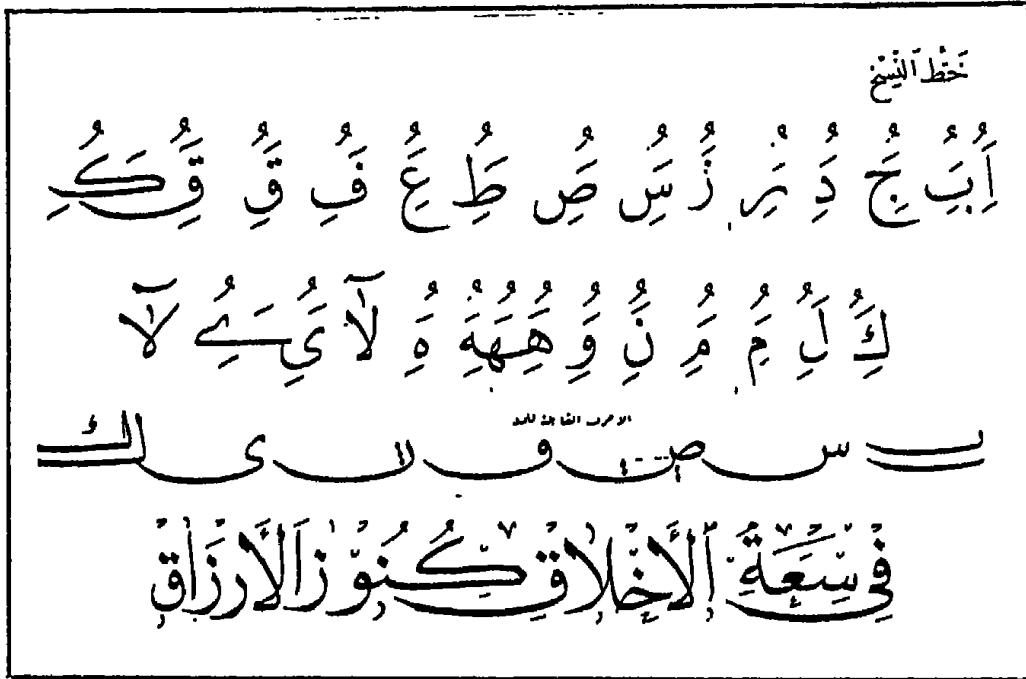 خَطُّ ٱلنَّسْخِ
اَُ بَُِ جَُِ دَُِ رَُِ زَُ سَُِ صَُِ طَُِ عَُِ فَُِ قَُِ قَُِ كَُِ
كَُِ لَُِ مَُِ مَُِ نَُِ وَُِ هَُِ هَُِ هَُِ هَُ لآ يَُِ ےَُِ لآ
الاحرف القابلة للمد
ب س ص ف ن ى ك
فِي سِعَةِ ٱلْأَخْلَاقِ كُنُوْزُ ٱلْأَرْزَاقِ